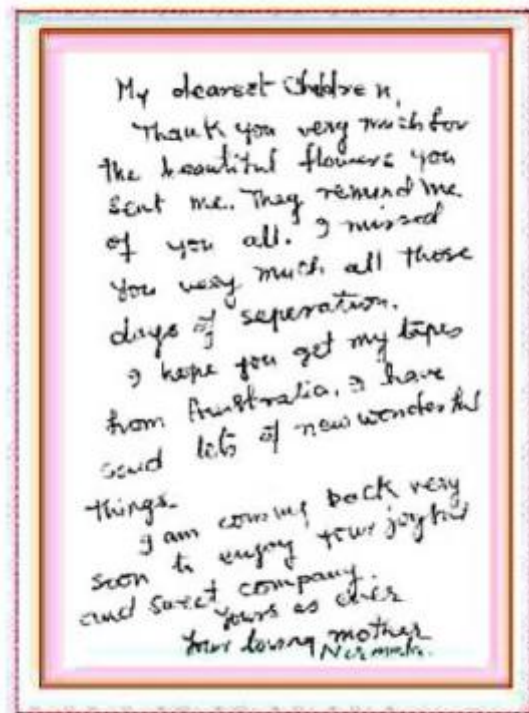 My dearest Children,
Thank you very much for
the beautiful flowers you
sent me. They remind me
of you all. I missed
you very much all those
days of seperation.
I hope you get my tapes
from Australia. I have
said lots of new wonderful
things.
I am coming back very
soon to enjoy your joyful
and sweet company.
Yours as ever
Your loving mother
Nirmala.